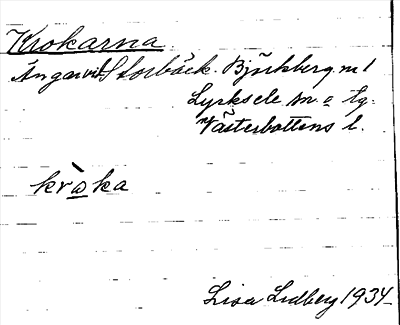 Krokarna
Ångarvid Storbäck. Björkberg m 1
Lycksele sn. o tg.
Västerbottens l.
kràka
Lisa Lidberg 1934